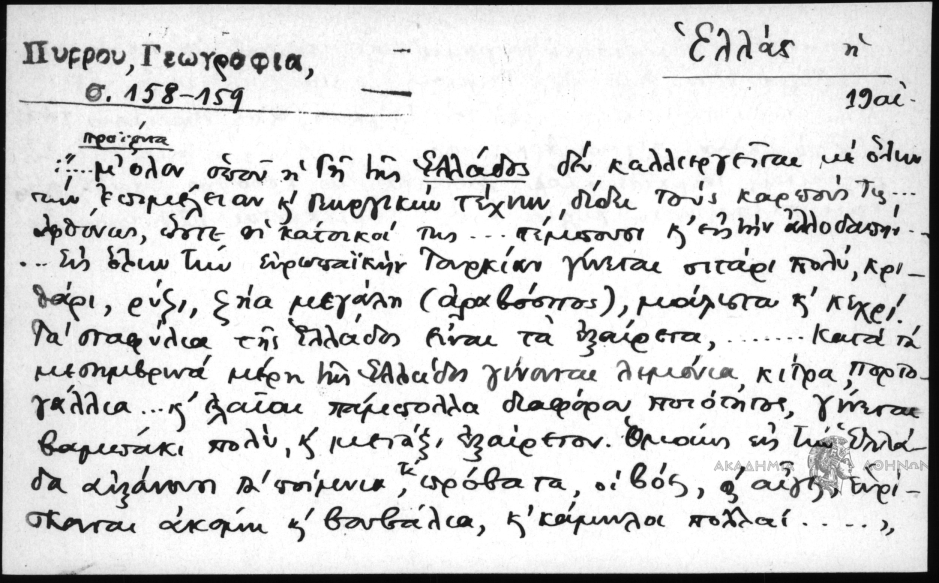 Πύρρου, Γεωγραφία,
σ. 158-159
Ἑλλάς ἡ
19 αἰ
προϊόντα
".... μ' ὅλον ὁποῦ ἡ Γῆ τῆς Ἑλλάδος δὲν καλλιεργεῖται μὲ ὅλην
τὴν ἐπιμέλειαν κ' γεωργικὴν τέχνην, δίδει τοὺς καρπούς της...
ἀφθόνως, ὥστε οἱ κάτοικοί της ... πέμπουσι κ' εἰς τὴν ἀλλοδαπὴν...
... Εἰς ὅλην τὴν εὐρωπαϊκὴν Τουρκίαν γίνεται σιτάρι πολύ, κρι-
θάρι, ρύζι, ζῆα μεγάλη (ἀραβόσιτος), μάλιστα κ' κεχρί.
Τὰ σταφύλια τῆς Ἑλλάδος εἶναι τὰ ἐξαίρετα, ....... Κατὰ τὰ
μεσημβρινὰ μέρη τῆς Ἑλλάδος γίνονται λεμόνια, κίτρα, πορτο-
γάλλια ... κ' ἐλαῖαι πάμπολλα διαφόρου ποιότητος, γίνεται
βαμπάκι πολύ, κ' μετάξι ἐξαίρετον. Ὁμοίως εἰς τὴν Ἑλλά-
δα αὐξάνουσι τὰ ποίμνια, τὰ πρόβατα, οἱ βόες, αἱ αἶγες, εὑρί-
σκονται ἀκόμη κ' βουβάλια, κ' κάμηλοι πολλαί ....."
ΑΚΑΔΗΜΙΑ ΑΘΗΝΩΝ